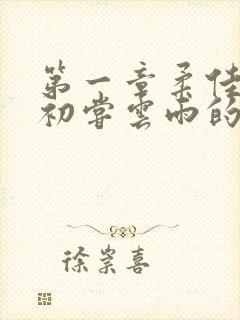 第一章柔佳
初尝云雨的
徐崇喜